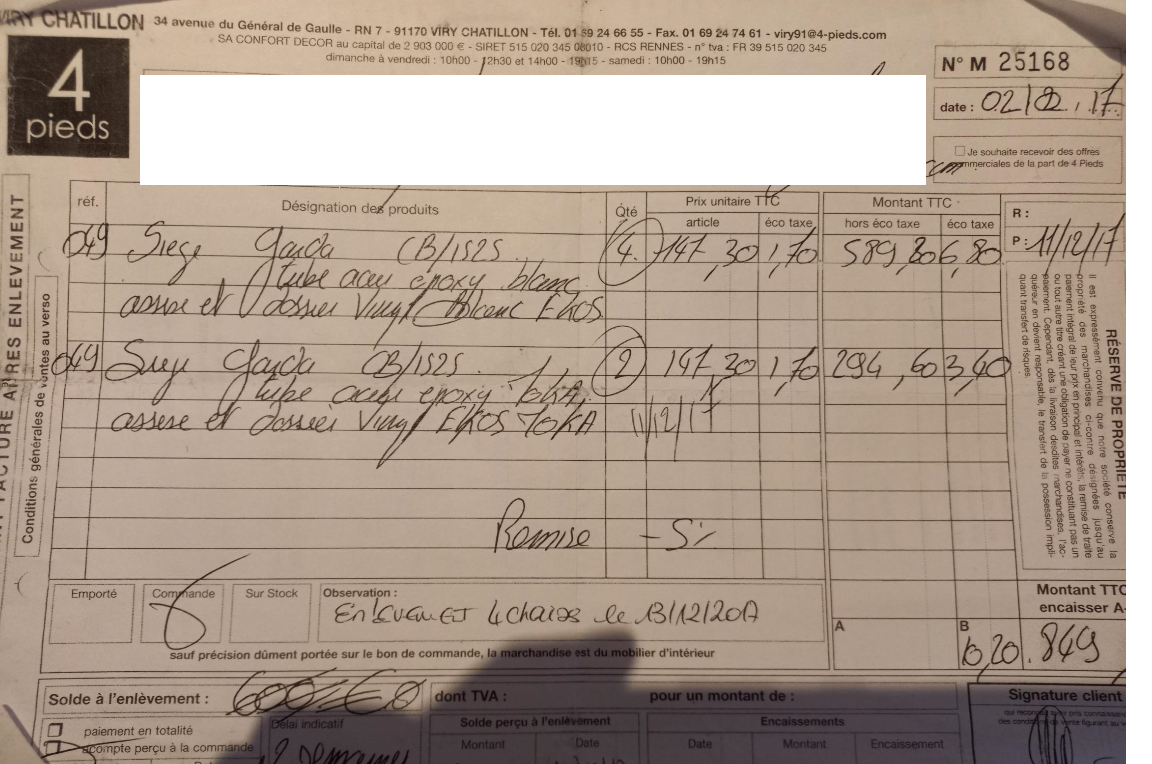 VIRY CHATILLON 34 avenue du Général de Gaulle - RN 7 - 91170 VIRY CHATILLON - Tél. 01 69 24 66 55 - Fax. 01 69 24 74 61 - viry91@4-pieds.com
SA CONFORT DECOR au capital de 2 903 000 € - SIRET 515 020 345 00010 - RCS RENNES - n° tva : FR 39 515 020 345
dimanche à vendredi : 10h00 - 12h30 et 14h00 - 19h15 - samedi : 10h00 - 19h15
4
pieds
N° M 25168
date : 02/12.17
Je souhaite recevoir des offres
commerciales de la part de 4 Pieds
réf.
Désignation des produits
Qté
Prix unitaire TTC
article
éco taxe
Montant TTC
hors éco taxe
éco taxe
R :
P : 11/12/17
049 Siege Garda CB/1525 4. 147,30 1,70 589,80 6,80
tube acier epoxy blanc
assise et dossier Vinyl Blanc EKOS
049 Siege Garda CB/1525. 2 147,30 1,70 294,60 3,40
tube acier epoxy
assise et dossier Vinyl EKOS 11/12/17
Remise -5%
FACTURE APRES ENLEVEMENT
Conditions générales de ventes au verso
RÉSERVE DE PROPRIÉTÉ
Il est expressément convenu que notre société conserve la
propriété des marchandises ci-contre désignées jusqu'au
paiement intégral de leur prix en principal et intérêts, la remise de traite
ou tout autre titre créant une obligation de payer ne constituant pas un
paiement. Cependant, dès la livraison desdites marchandises, l'ac-
quéreur en devient responsable, le transfert de la possession impli-
quant transfert de risques.
Emporté
Commande
Sur Stock
Observation :
Enlevement 4 chaises le 13/12/2017
sauf précision dûment portée sur le bon de commande, la marchandise est du mobilier d'intérieur
A
B
10,20
Montant TTC
encaisser A
849
Solde à l'enlèvement :
dont TVA :
pour un montant de :
Signature client
paiement en totalité
acompte perçu à la commande
Délai indicatif
Semaines
Solde perçu à l'enlèvement
Montant
Date
Encaissements
Date
Montant
Encaissement